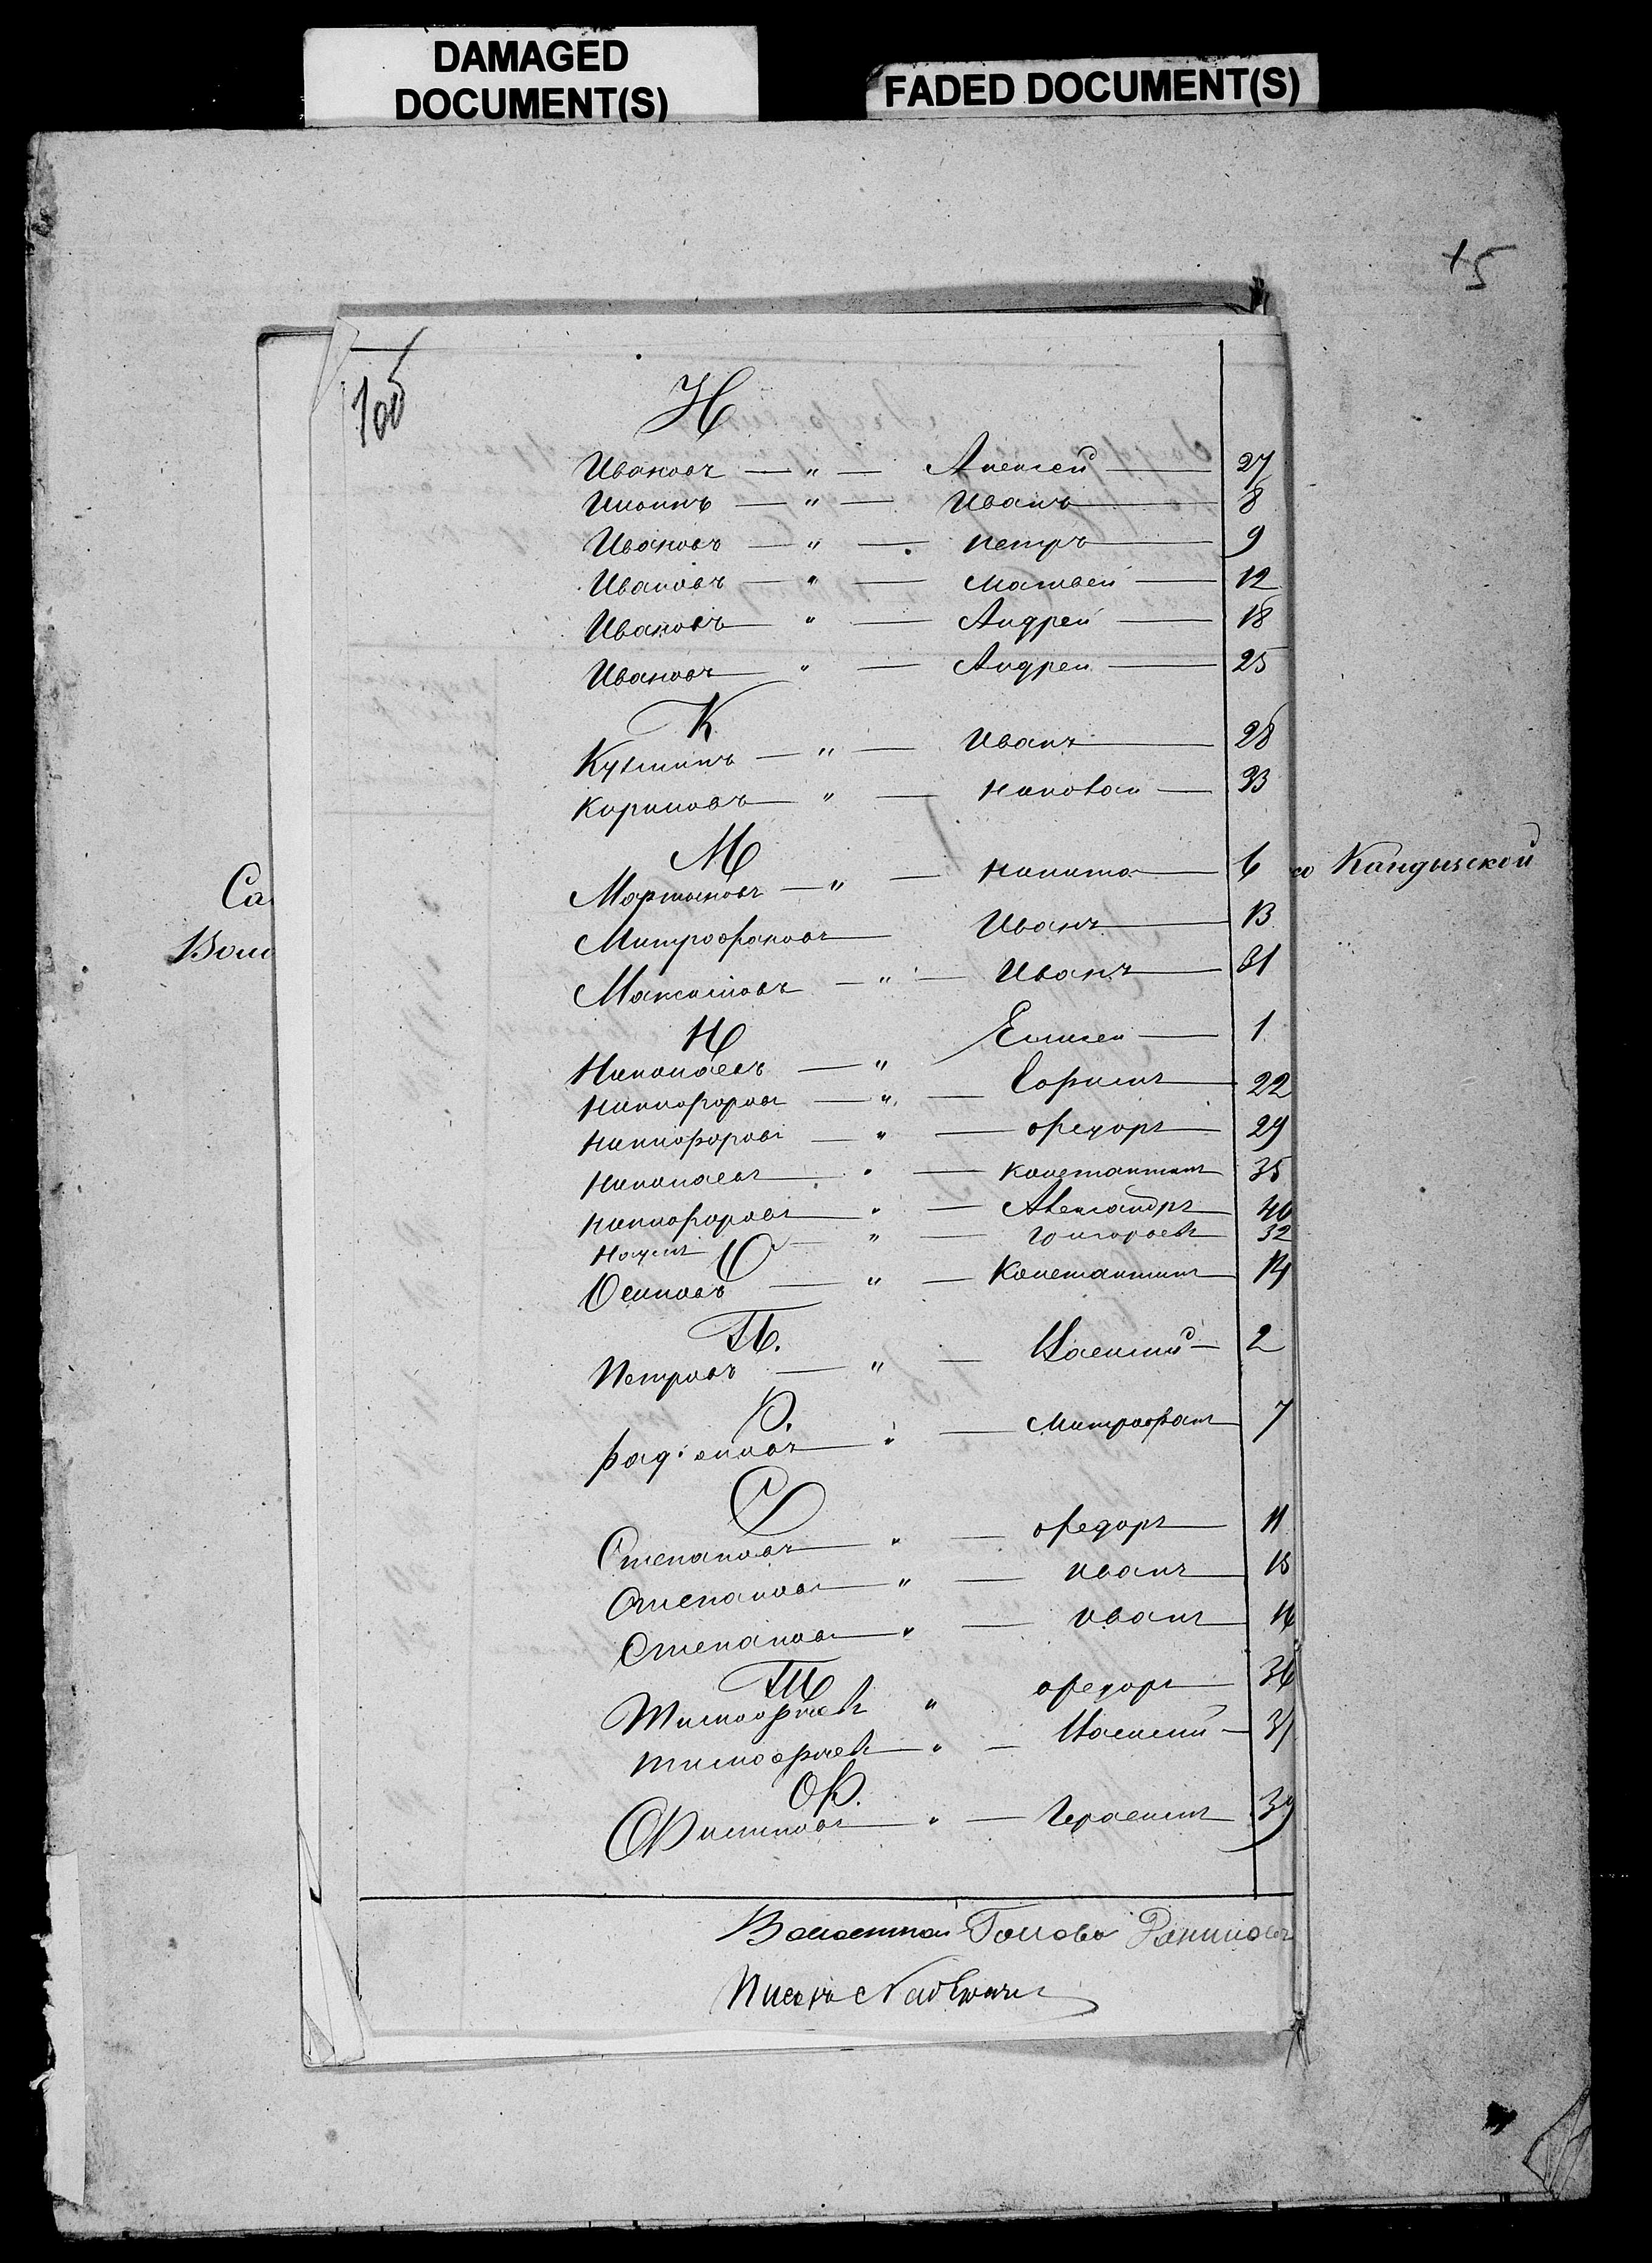 DAMAGED
DOCUMENT(S)
FADED DOCUMENT(S)
+5
И
Ивановъ — " — Алексей — 27
Ильинъ — " — Иванъ — 8
Ивановъ — " — Петръ — 9
Ивановъ — " — Матвей — 12
Ивановъ — " — Андрей — 18
Ивановъ — " — Андрей — 25
К
Кузминъ — " — Иванъ — 28
Кириловъ — " — Николай — 33
М
Мартыновъ — " — Никита — 6
Митрофановъ — Иванъ — 13
Максимовъ — " — Иванъ — 31
Н
Николаевъ — " Елисей — 1
Никифоровъ — " — Ефримъ — 22
Никифоровъ — " — Федоръ — 29
Николаевъ — " — Константинъ 35
Никифоровъ — " — Александръ 40
Наумъ — " — Григорьевъ 32
О
Осиповъ — " — Константинъ — 14
П.
Петровъ — " — Василий — 2
Р.
Радіоновъ — " — Митрофанъ 7
С
Степановъ — " — Федоръ — 11
Степановъ — " — Иванъ — 15
Степановъ — " — Иванъ — 16
Т
Тимофѣевъ " Федоръ — 36
Тимофѣевъ — " — Василий — 31
Ф.
Филиповъ — " — Герасимъ 39
Волостной Голова
Писарь
Са
Воло
Кандинской